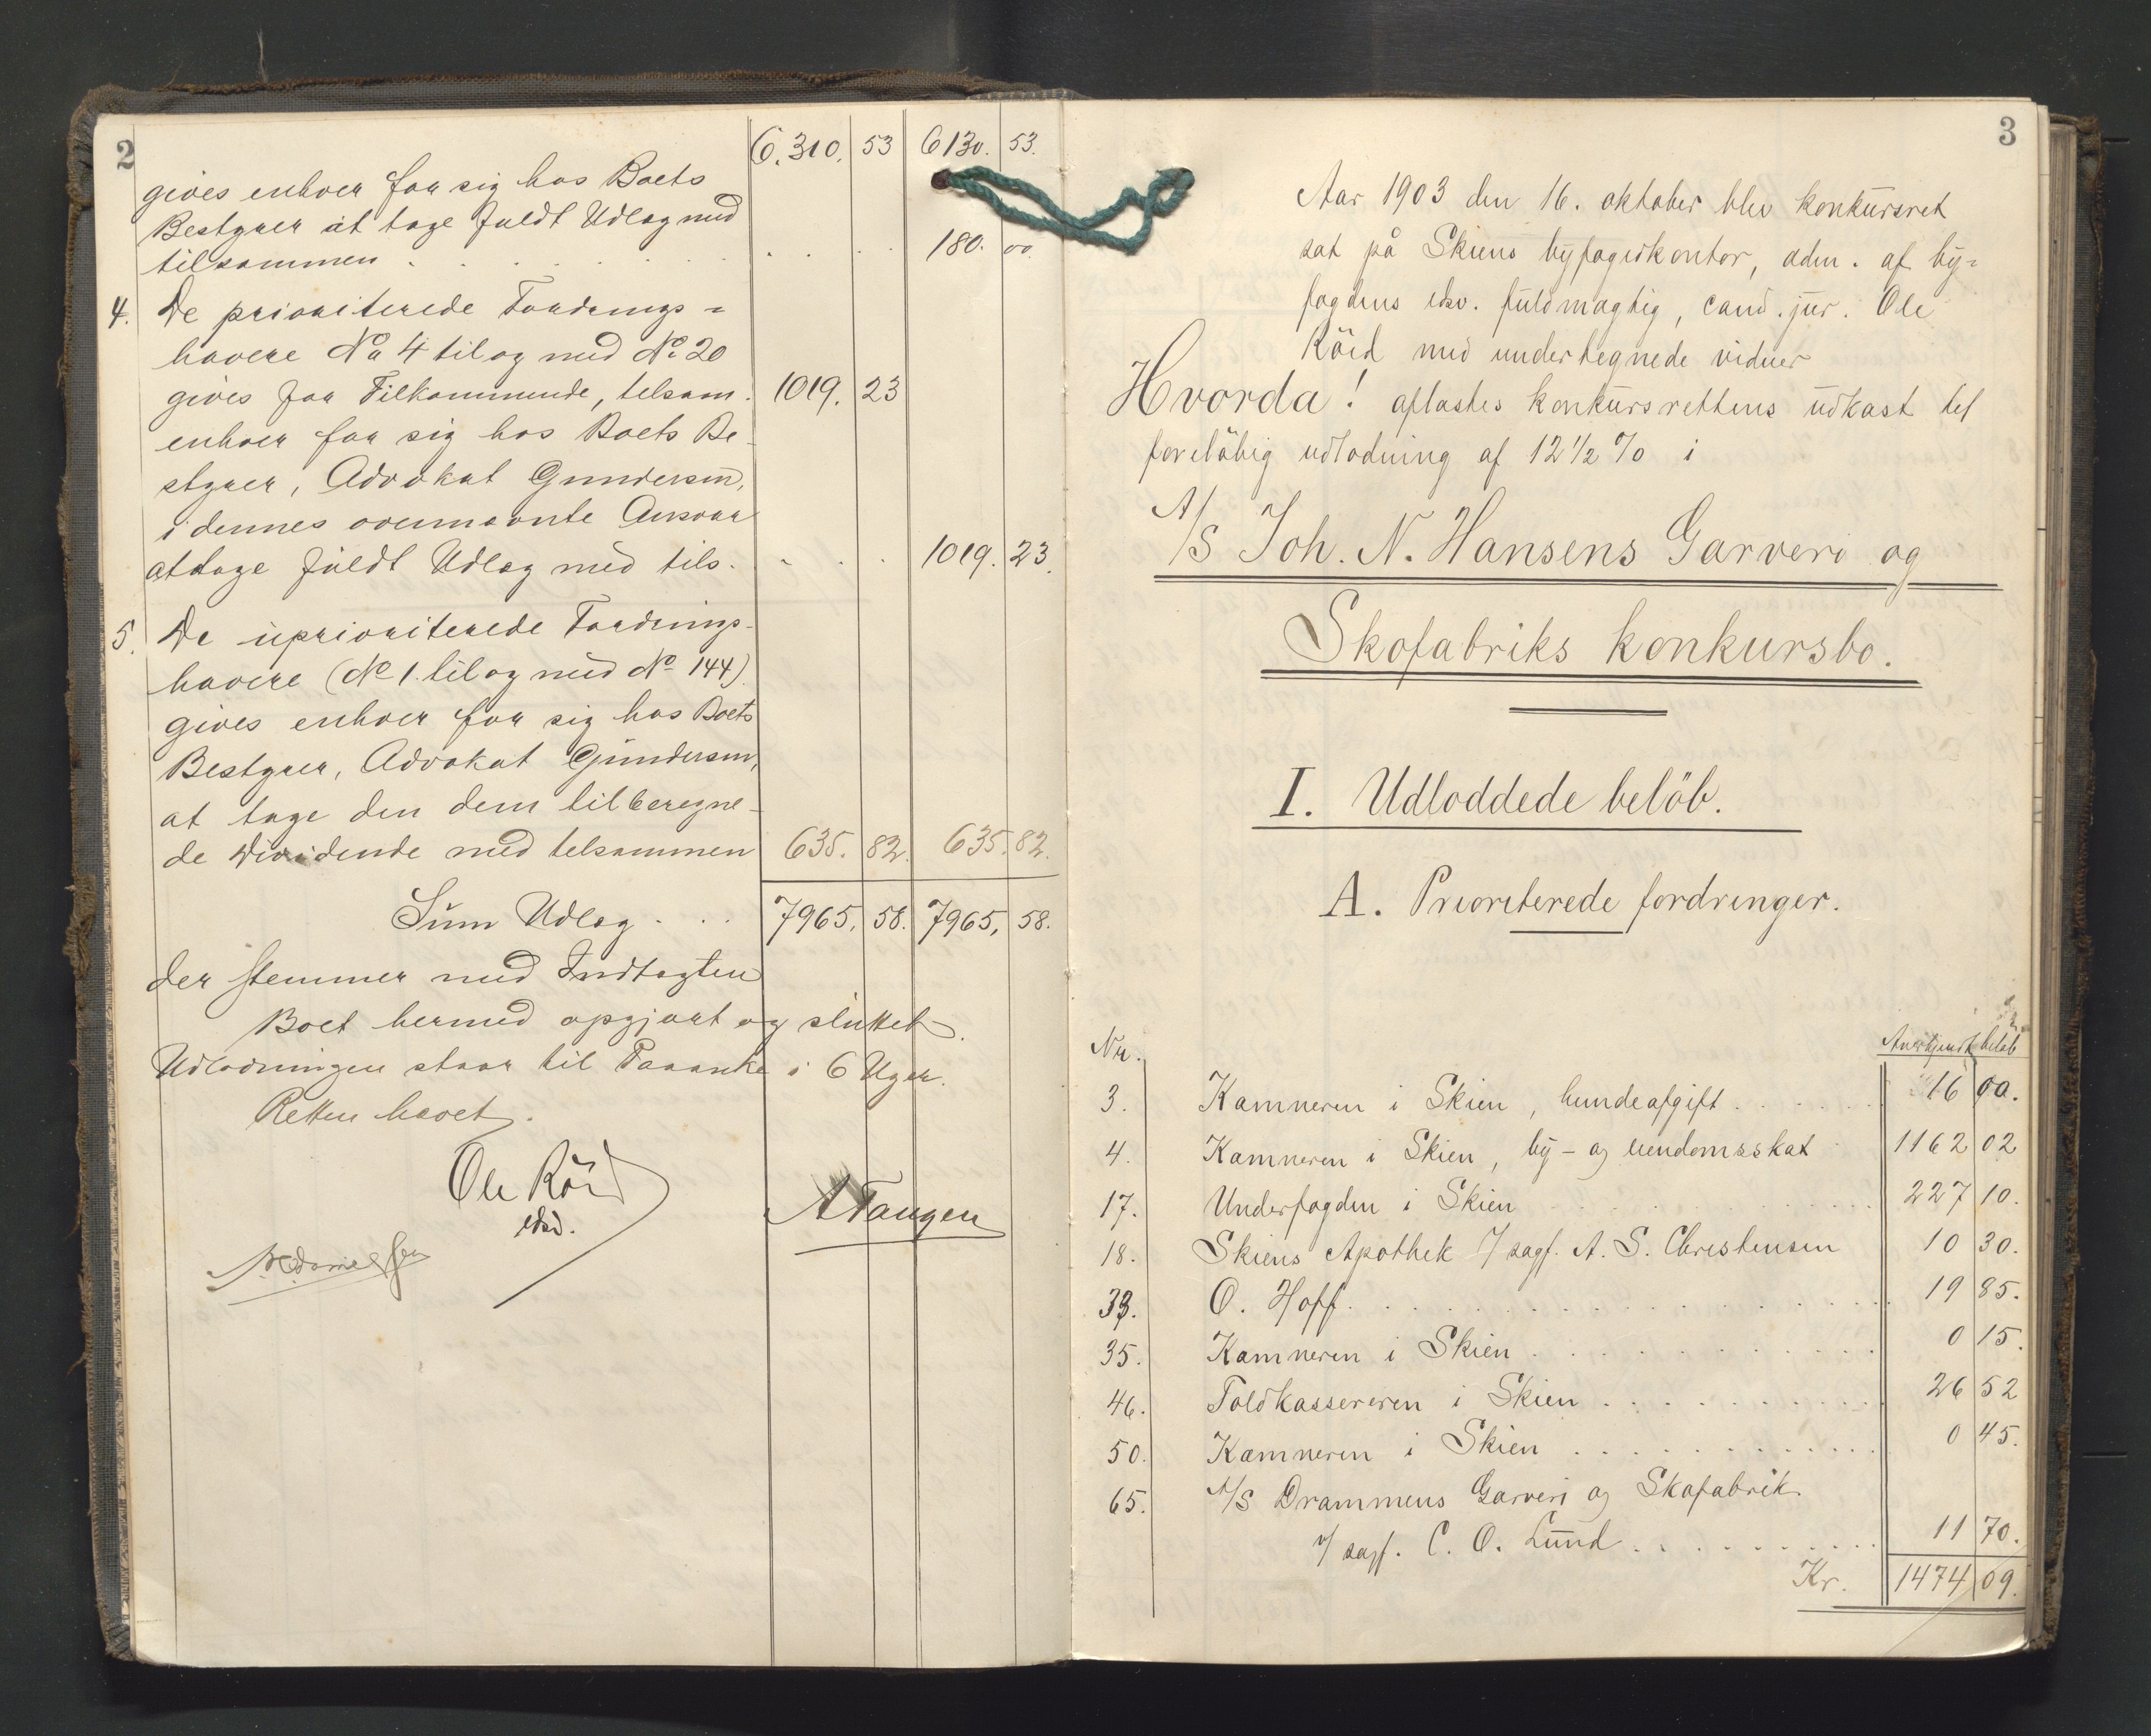 2
6.310. 53 6130. 53.
gives enhver for sig hos Boets
Bestyrer at tage fuldt Udlæg med
tilsammen . . . . . . . . . . 180. 00.
4. De prioriterede Fordrings=
havere No 4 til og med No 20
gives for Tilkommende, tilsam. 1019. 23
enhver for sig hos Boets Be-
styrer, Advokat Gundersen,
i dennes ovennævnte Ansvar
at tage fuldt Udlæg med tils. . . . 1019. 23.
5. De uprioriterede Fordrings-
havere (No 1. til og med No 144)
gives enhver for sig hos Boets
Bestyrer, Advokat Gundersen,
at tage den dem tilberegne-
de Dividende med tilsammen 635. 82. 635. 82.
Sum Udlæg . . . 7965. 58. 7965. 58.
der stemmer med Indtægten
Boet hermed opgjort og sluttet.
Udlodningen staar til Paaanke i 6 Uger.
Retten hævet.
Ole Röed
edsv.
A Tangen
3
Aar 1903 den 16. oktober blev konkursret
sat på Skiens byfogedkontor, adm. af by=
fogdens edsv. fuldmægtig, cand. jur. Ole
Röed med undertegnede vidner
Hvorda! oplæstes konkursrettens udkast til
foreløbig udlodning af 12 1/2 % i
A/S Joh. N. Hansens Garveri og
Skofabriks konkursbo.
I. Udloddede beløb.
A. Prioriterede fordringer.
Nr. Anerkjendt beløb
3. Kæmneren i Skien, hundeafgift . . . . . . 16 00.
4. Kæmneren i Skien, by- og eiendomsskat 1162 02
17. Underfogden i Skien . . . . . . . . 227 10.
18. Skiens Apothek v/ sagf. A. S. Christensen 10 30.
33. O. Hoff. . . . . . . . . . . . . . 19 85.
35. Kæmneren i Skien . . . . . . . . . 0 15.
46. Toldkassereren i Skien . . . . . . . . 26 52
50. Kæmneren i Skien . . . . . . . . . 0 45.
65. A/S Drammens Garveri og Skofabrik
v/ sagf. C. O. Lund . . . . . . . . . 11 70.
Kr. 1474 09.